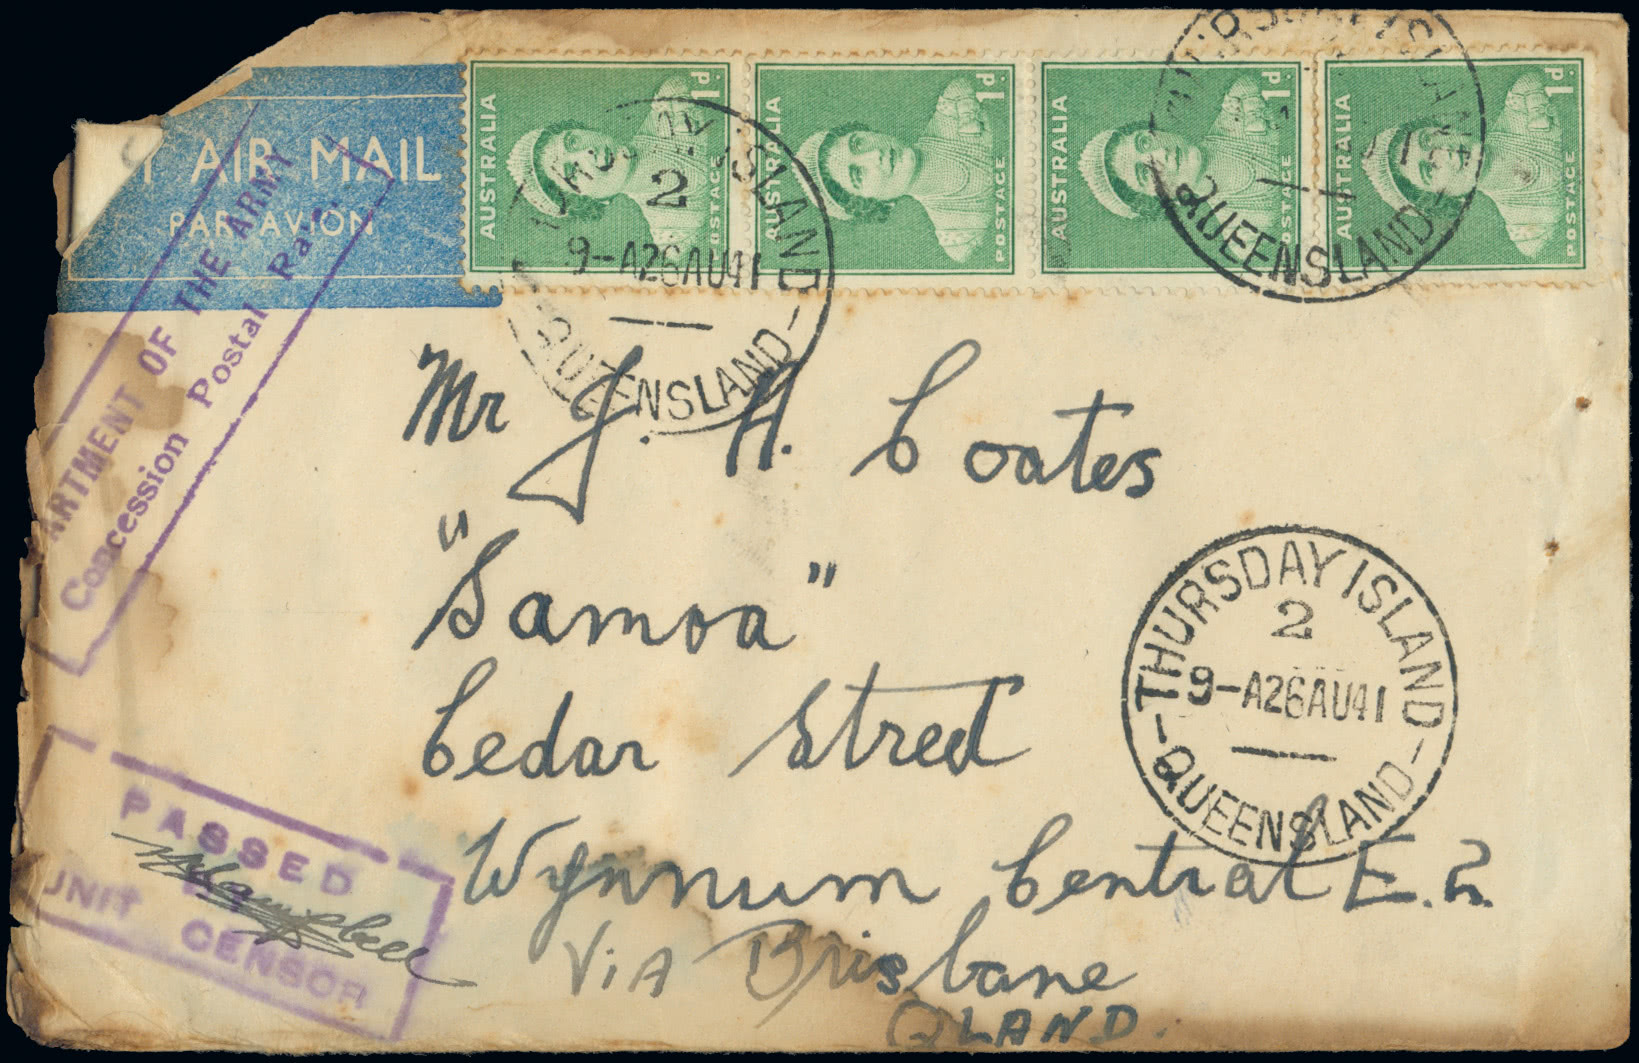 AIR MAIL
PAR AVION
AUSTRALIA 1d. POSTAGE
AUSTRALIA 1d. POSTAGE
AUSTRALIA 1d. POSTAGE
AUSTRALIA 1d. POSTAGE
THURSDAY ISLAND
2
9-A26AU41
QUEENSLAND
THURSDAY ISLAND
QUEENSLAND
ARTMENT OF THE ARMY
Concession Postal Ra
Mr J. H. Coates
"Samoa"
Cedar Street
Wynnum Central E.2.
Via Brisbane
QLAND.
THURSDAY ISLAND
2
9-A26AU41
QUEENSLAND
PASSED
BY
UNIT CENSOR